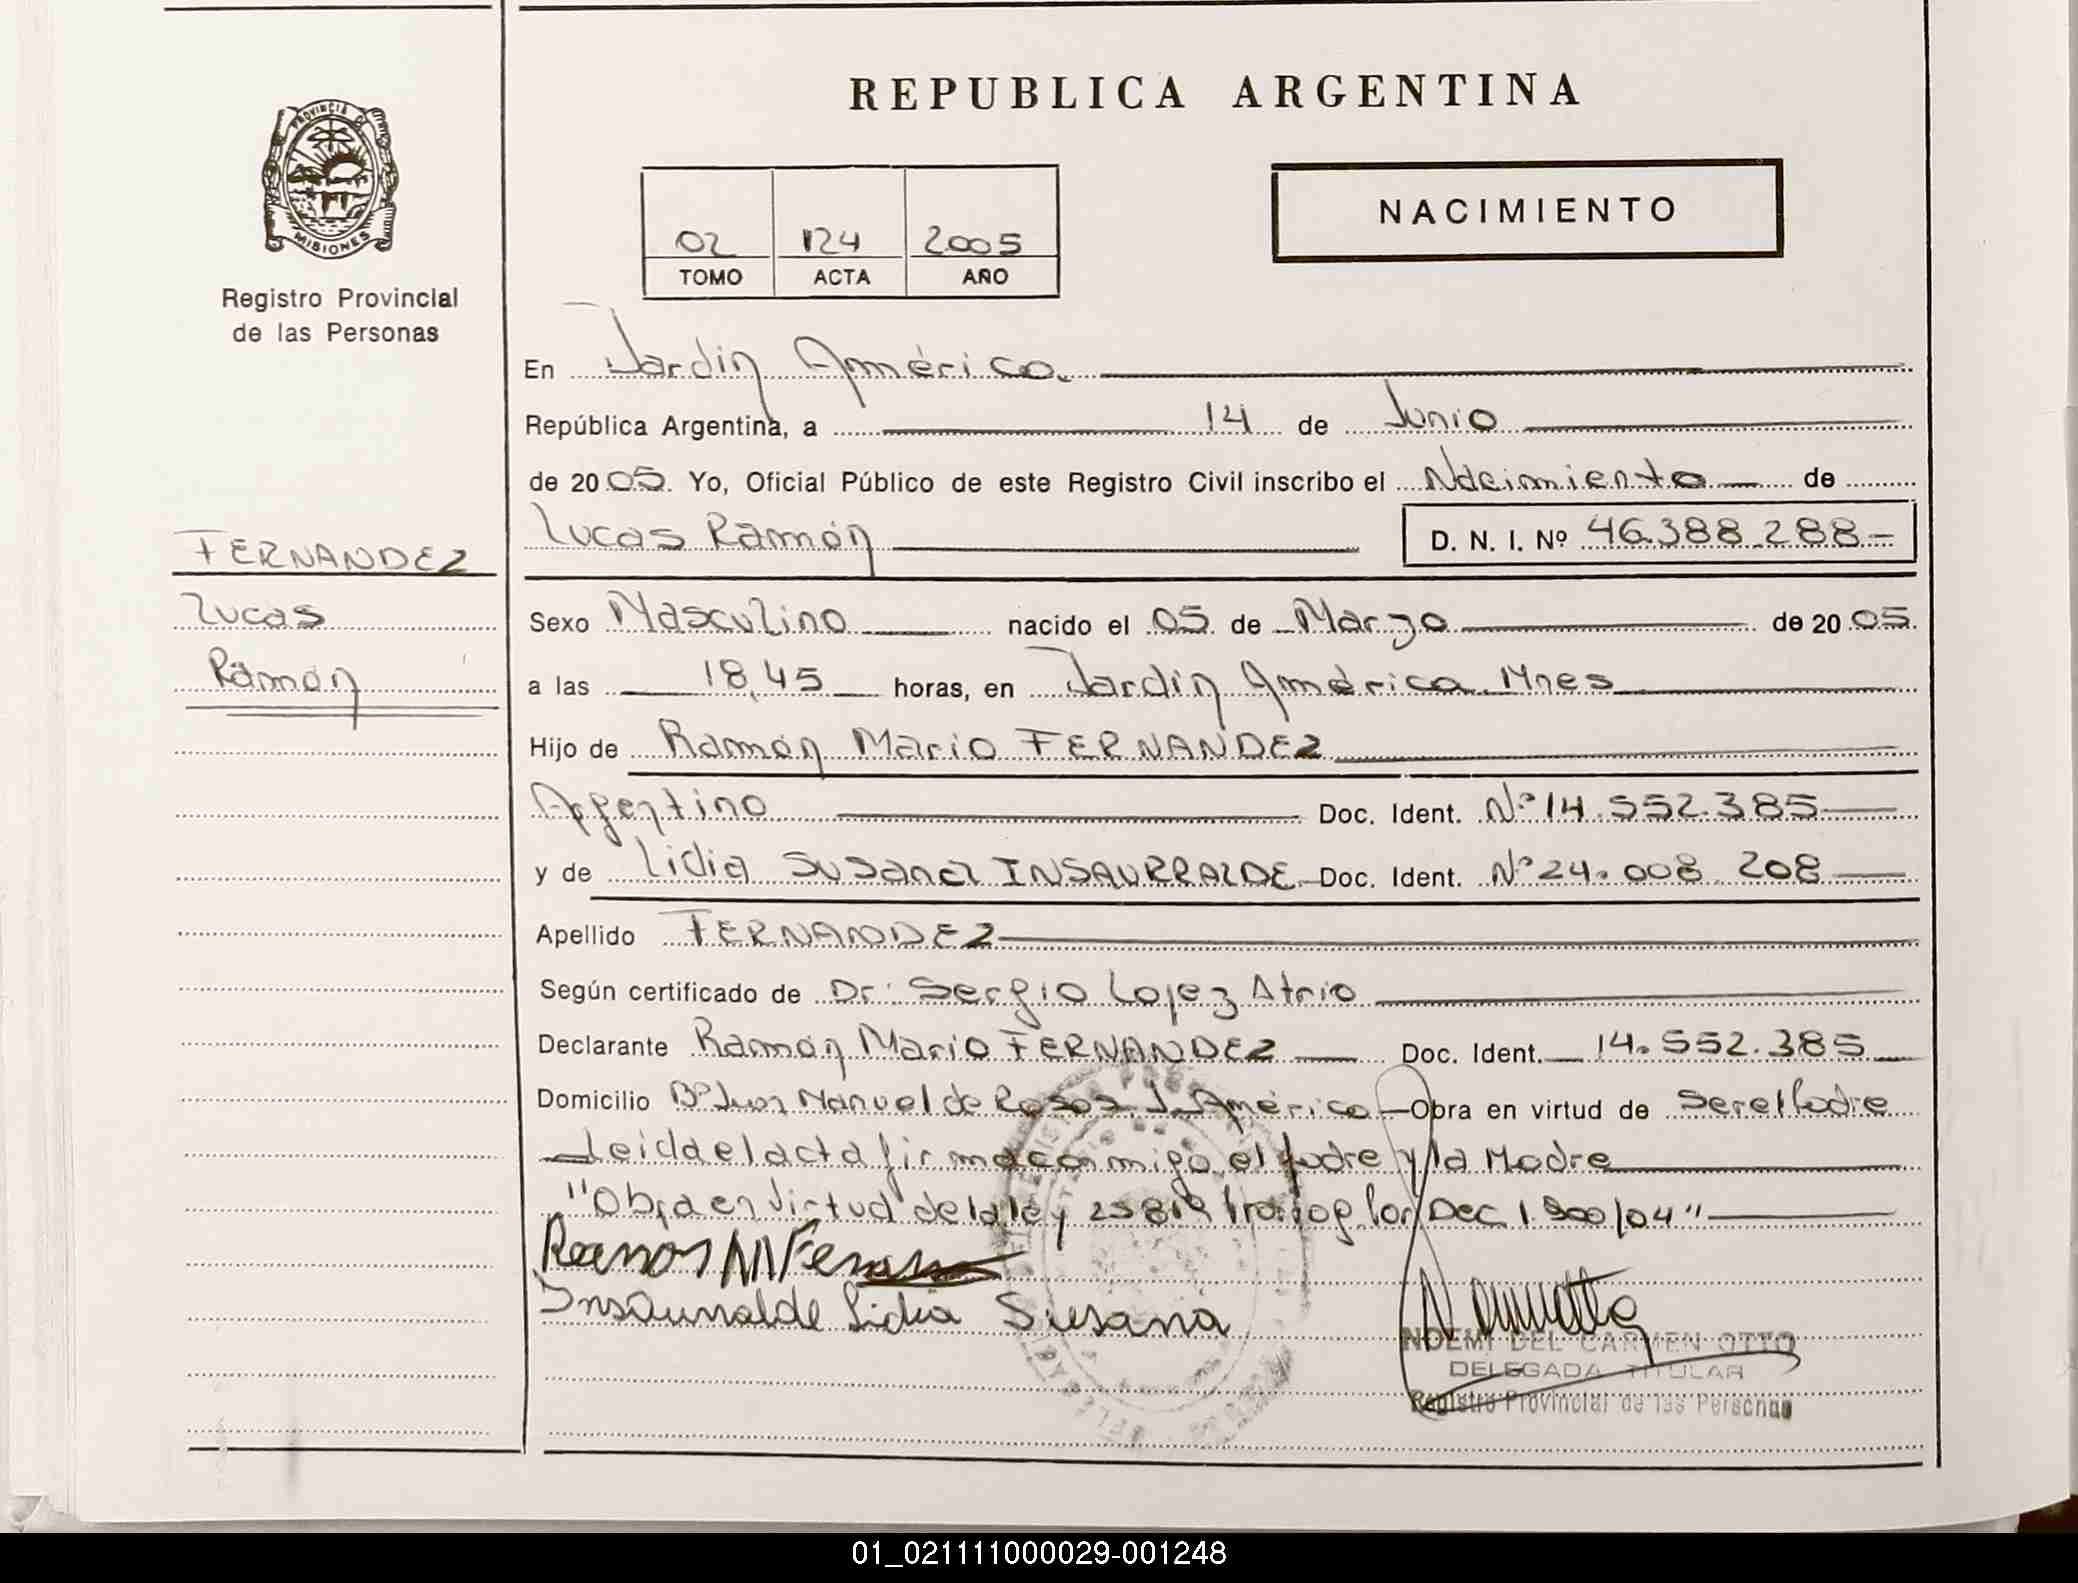 PROVINCIA D
MISIONES
Registro Provincial
de las Personas
REPUBLICA ARGENTINA
NACIMIENTO
02 124 2005
TOMO ACTA AÑO
En Jardín América.
República Argentina, a 14 de Junio
de 2005. Yo, Oficial Público de este Registro Civil inscribo el Nacimiento de
Lucas Ramón D. N. I. Nº 46.388.288-
FERNANDEZ
Lucas
Ramón
Sexo Masculino nacido el 05 de Marzo de 2005.
a las 18,45 horas, en Jardín América Mnes
Hijo de Ramón Mario FERNANDEZ
Argentino Doc. Ident. Nº 14.552.385
y de Lidia Susana INSAURRALDE Doc. Ident. Nº 24.008.208
Apellido FERNANDEZ
Según certificado de Dr. Sergio Lopez Atrio
Declarante Ramón Mario FERNANDEZ Doc. Ident. 14.552.385
Domicilio Bº Juan Manuel de Rosas J. América Obra en virtud de ser el Padre
Leida el acta firma conmigo el padre y la Madre
"Obra en virtud de la ley 25819 por Dec 1.900/04"
Ramon M Fernan
Insaurralde Lidia Susana
NOEMI DEL CARMEN OTTO
DELEGADA TITULAR
Registro Provincial de las Personas
01_021111000029-001248